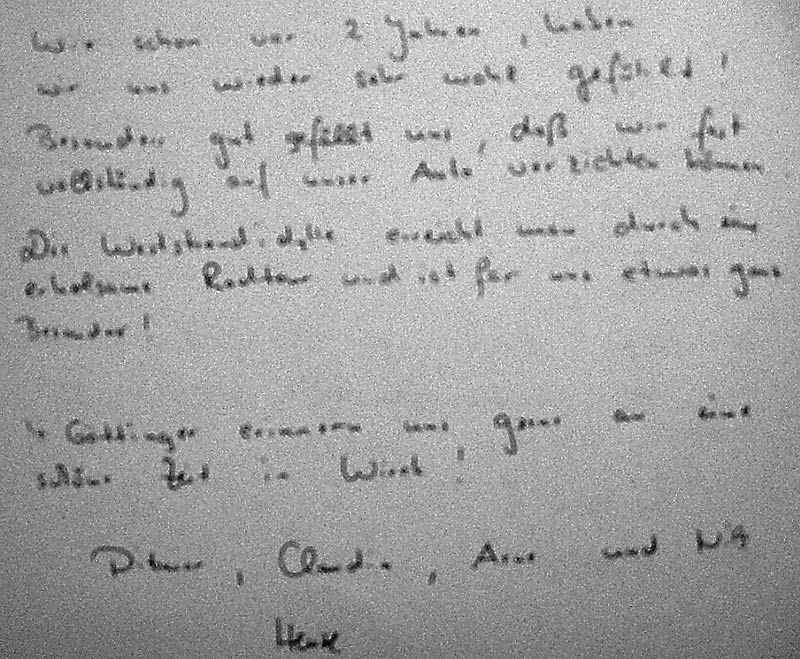 Wie schon vor 2 Jahren, haben
wir uns wieder sehr wohl gefühlt!
Besonders gut gefällt uns, daß wir fast
vollständig auf unser Auto verzichten können
Die erreicht man durch eine
erholsame Radtour und ist für uns etwas ganz
Besonderes!
4 Göttinger erinnern uns gerne an eine
schöne Zeit in Wieck!
, Claudia, Arne und Nils